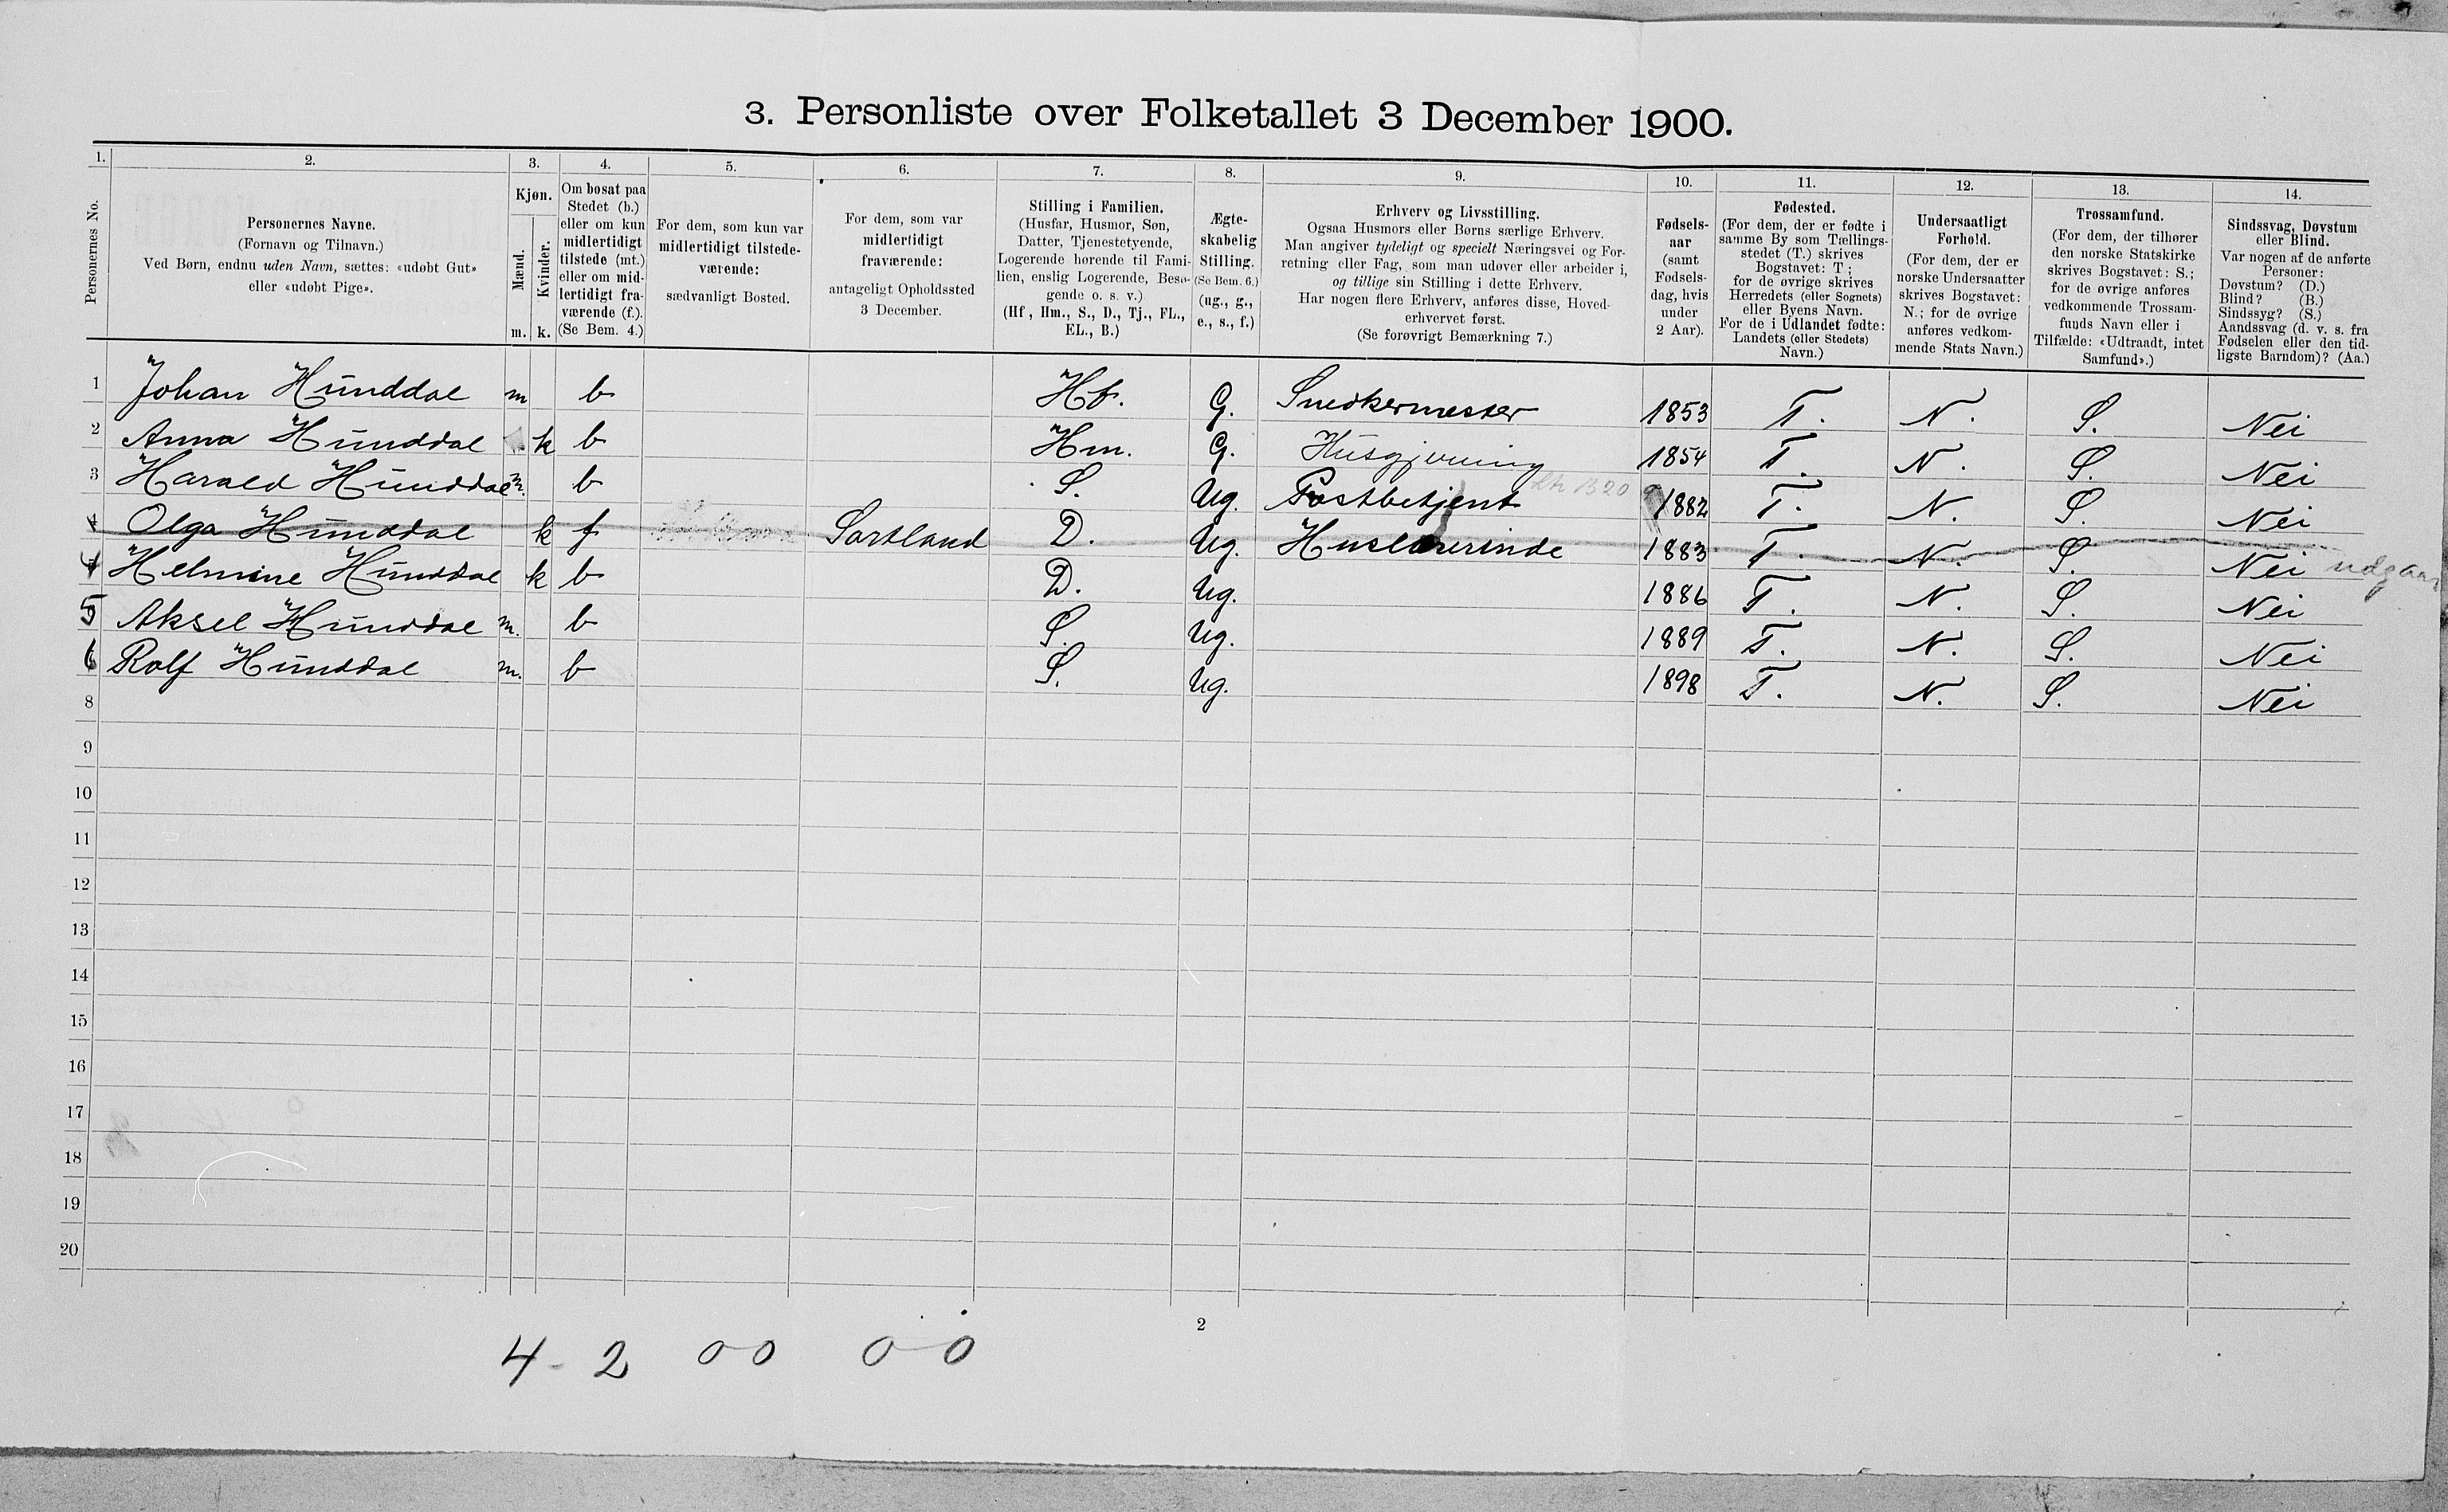 3. Personliste over Folketallet 3 December 1900.
1. 2. 3. 4. 5. 6. 7. 8. 9. 10. 11. 12. 13. 14.
Personernes No.
Personernes Navne.
(Fornavn og Tilnavn.)
Ved Børn, endnu uden Navn, sættes: «udøbt Gut»
eller «udøbt Pige».
Kjøn.
Mænd.
Kvinder.
m. k.
Om bosat paa
Stedet (b.)
eller om kun
midlertidigt
tilstede (mt.)
eller om mid-
lertidigt fra-
værende (f.).
(Se Bem. 4.)
For dem, som kun var
midlertidigt tilstede-
værende:
sædvanligt Bosted.
For dem, som var
midlertidigt
fraværende:
antageligt Opholdssted
3 December.
Stilling i Familien.
(Husfar, Husmor, Søn,
Datter, Tjenestetyende,
Logerende hørende til Fami-
lien, enslig Logerende, Besø-
gende o. s. v.)
(Hf., Hm., S., D., Tj., FL.,
EL., B.)
Ægte-
skabelig
Stilling.
(Se Bem. 6.)
(ug., g.,
e., s., f.)
Erhverv og Livsstilling.
Ogsaa Husmors eller Børns særlige Erhverv.
Man angiver tydeligt og specielt Næringsvei og For-
retning eller Fag, som man udøver eller arbeider i,
og tillige sin Stilling i dette Erhverv.
Har nogen flere Erhverv, anføres disse, Hoved-
erhvervet først.
(Se forøvrigt Bemærkning 7.)
Fødsels-
aar
(samt
Fødsels-
dag, hvis
under
2 Aar).
Fødested.
(For dem, der er fødte i
samme By som Tællings-
stedet (T.) skrives
Bogstavet: T;
for de øvrige skrives
Herredets (eller Sognets)
eller Byens Navn.
For de i Udlandet fødte:
Landets (eller Stedets)
Navn.)
Undersaatligt
Forhold.
(For dem, der er
norske Undersaatter
skrives Bogstavet:
N.; for de øvrige
anføres vedkom-
mende Stats Navn.)
Trossamfund.
(For dem, der tilhører
den norske Statskirke
skrives Bogstavet: S.;
for de øvrige anføres
vedkommende Trossam-
funds Navn eller i
Tilfælde: «Udtraadt, intet
Samfund».)
Sindssvag, Døvstum
eller Blind.
Var nogen af de anførte
Personer:
Døvstum? (D.)
Blind? (B.)
Sindssyg? (S.)
Aandssvag (d. v. s. fra
Fødselen eller den tid-
ligste Barndom)? (Aa.)
1 Johan Hunddal m b Hf. G. Snedkermester 1853 T. N. S. Nei
2 Anna Hunddal k b Hm. G. Husgjerning 1854 T. N. S. Nei
3 Harald Hunddal m. b S. Ug. Postbetjent 1882 T. N. S. Nei
4 Olga Hunddal k f Sortland D. Ug. Huslærerinde 1883 T. N. S. Nei udgaar
4 Helmine Hunddal k b D. Ug. 1886 T. N. S. Nei
5 Aksel Hunddal m. b S. Ug. 1889 T. N. S. Nei
6 Rolf Hunddal m. b S. Ug. 1898 T. N. S. Nei
8
9
10
11
12
13
14
15
16
17
18
19
20
2
4 - 2 00 0-0